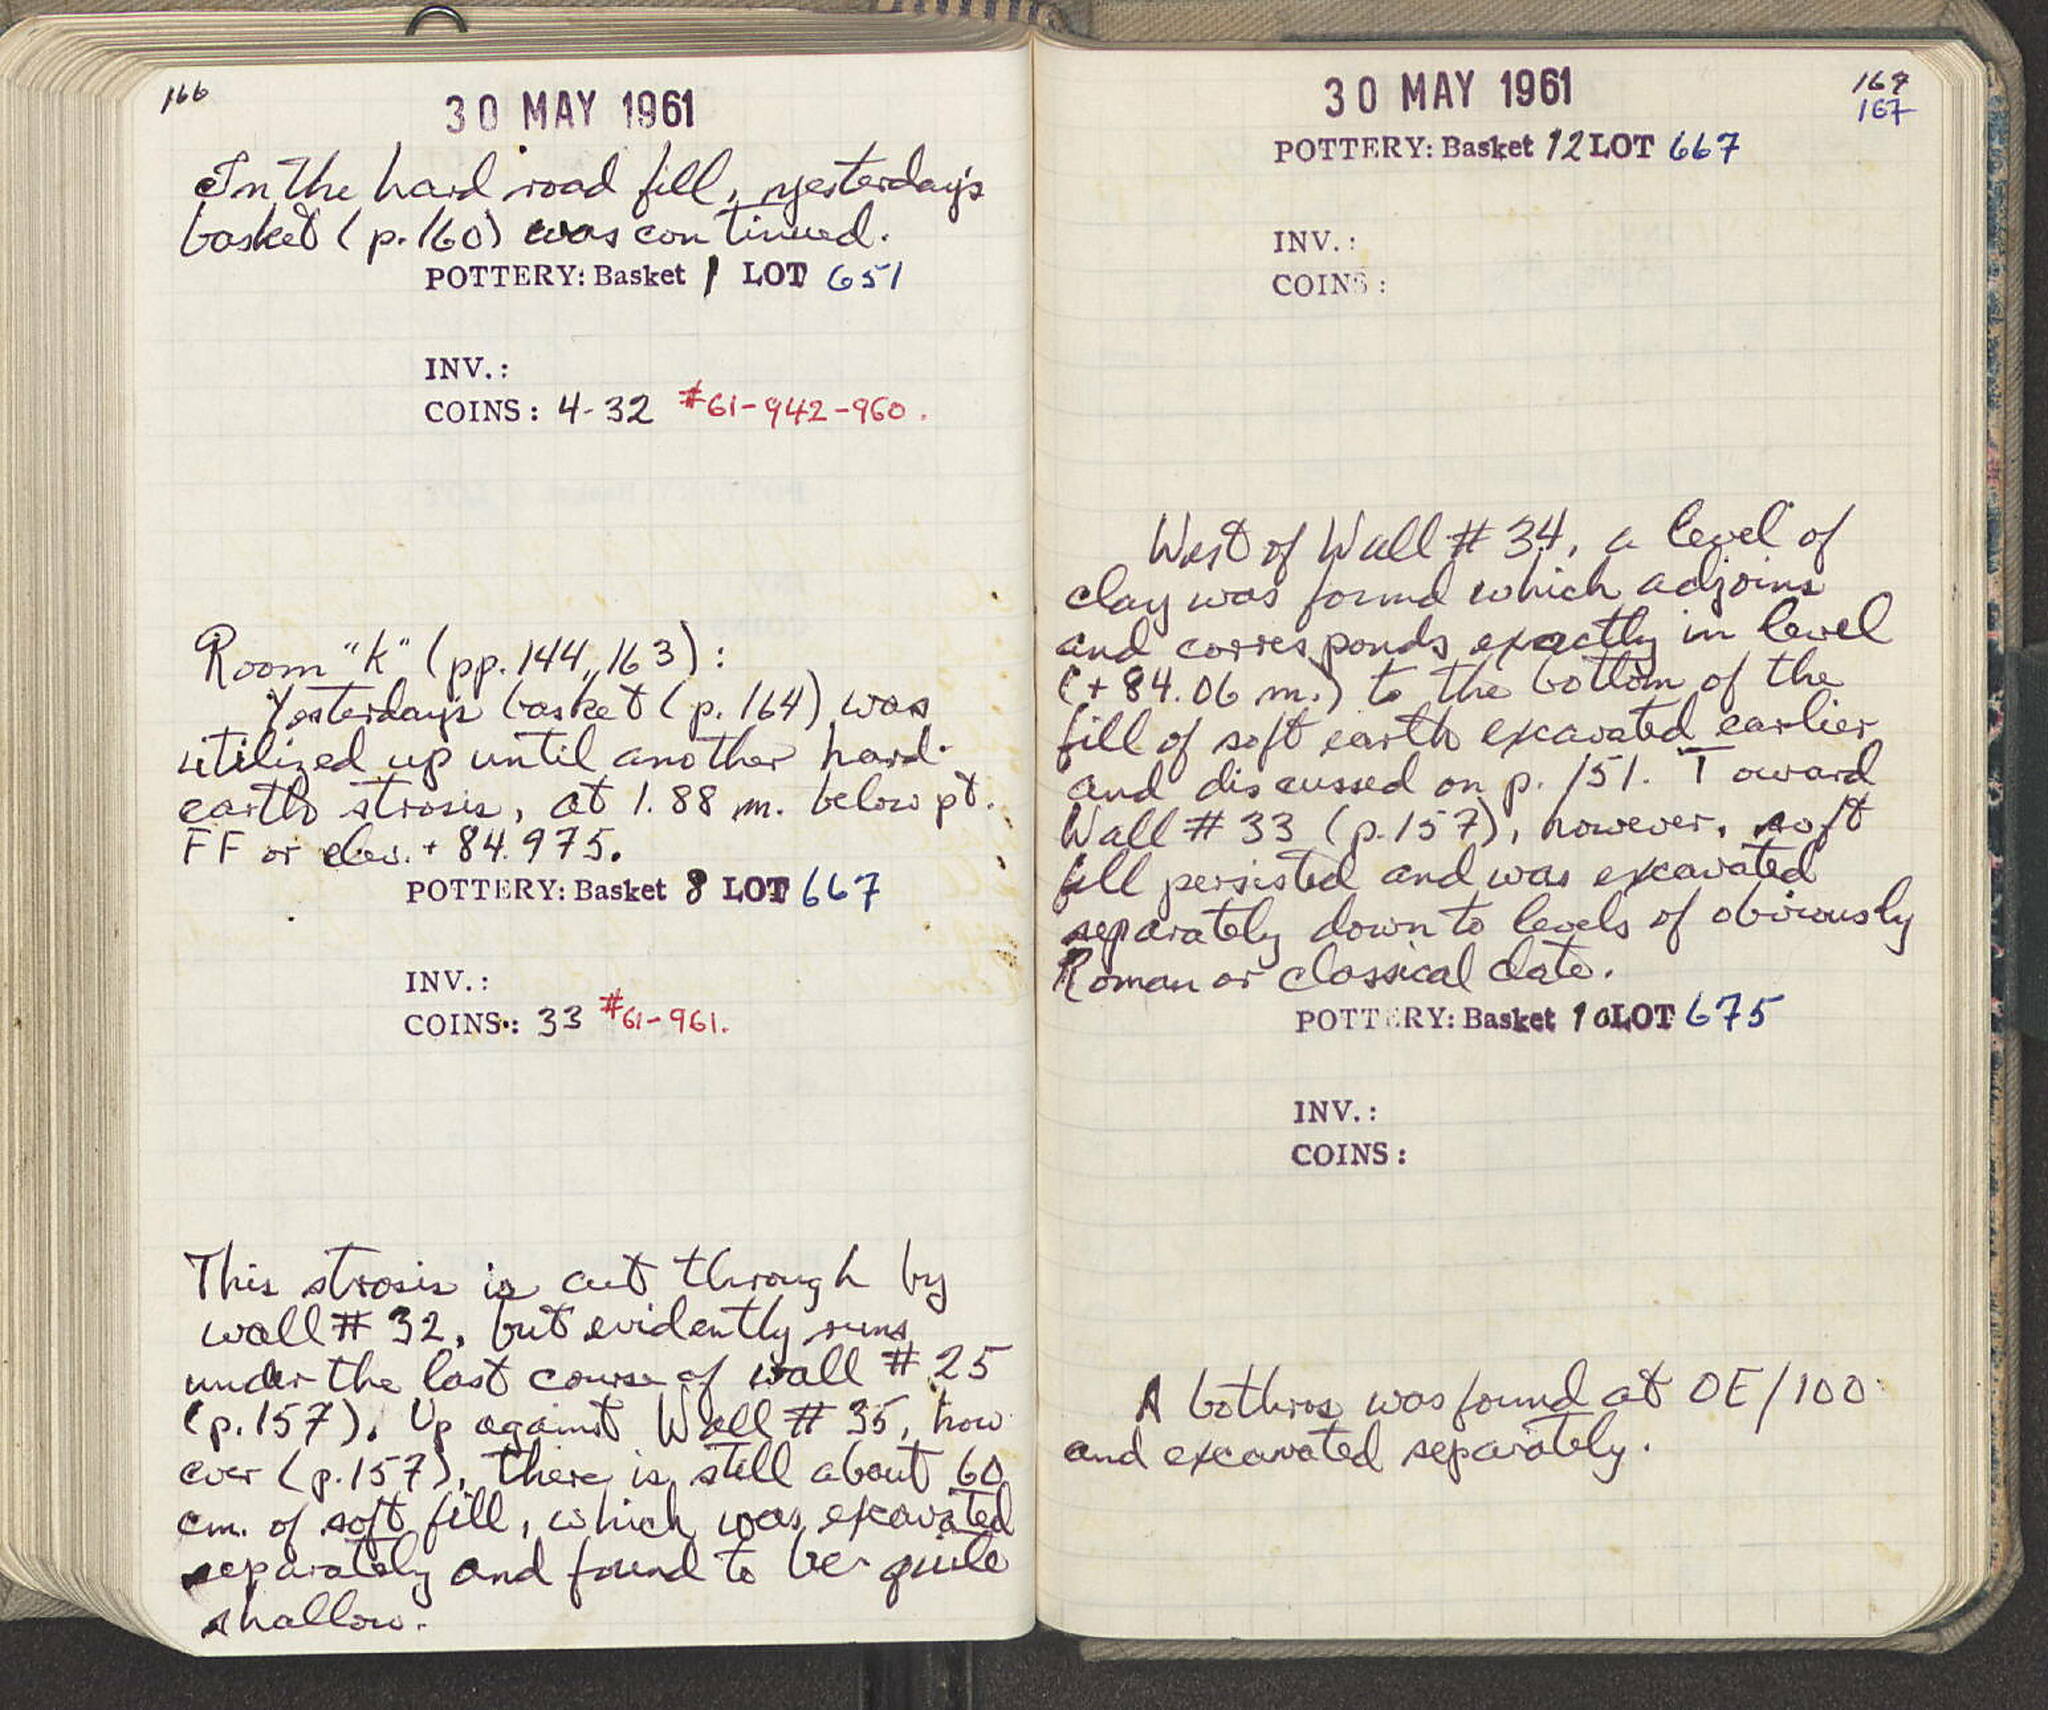 166
30 MAY 1961
In the hard road fill, yesterday's
basket (p. 160) was continued.
POTTERY: Basket 1 LOT 651
INV.:
COINS: 4-32 #61-942-960.
Room "K" (pp. 144, 163):
Yesterday's basket (p. 164) was
utilized up until another hard-
earth strosis, at 1.88 m. below pt.
FF or elev. + 84.975.
POTTERY: Basket 8 LOT 667
INV.:
COINS: 33 #61-961.
This strosis is cut through by
wall # 32, but evidently runs
under the last course of wall # 25
(p. 157). Up against Wall # 35, how
ever (p. 157), there is still about 60
cm. of soft fill, which was excavated
separately and found to be quite
shallow.
30 MAY 1961
167
POTTERY: Basket 12 LOT 667
INV.:
COINS:
West of Wall # 34, a level of
clay was found which adjoins
and corresponds exactly in level
(+ 84.06 m.) to the bottom of the
fill of soft earth excavated earlier
and discussed on p. 151. Toward
Wall # 33 (p. 157), however, soft
fill persisted and was excavated
separately down to levels of obviously
Roman or classical date.
POTTERY: Basket 10 LOT 675
INV.:
COINS:
A bothros was found at OE/100
and excavated separately.